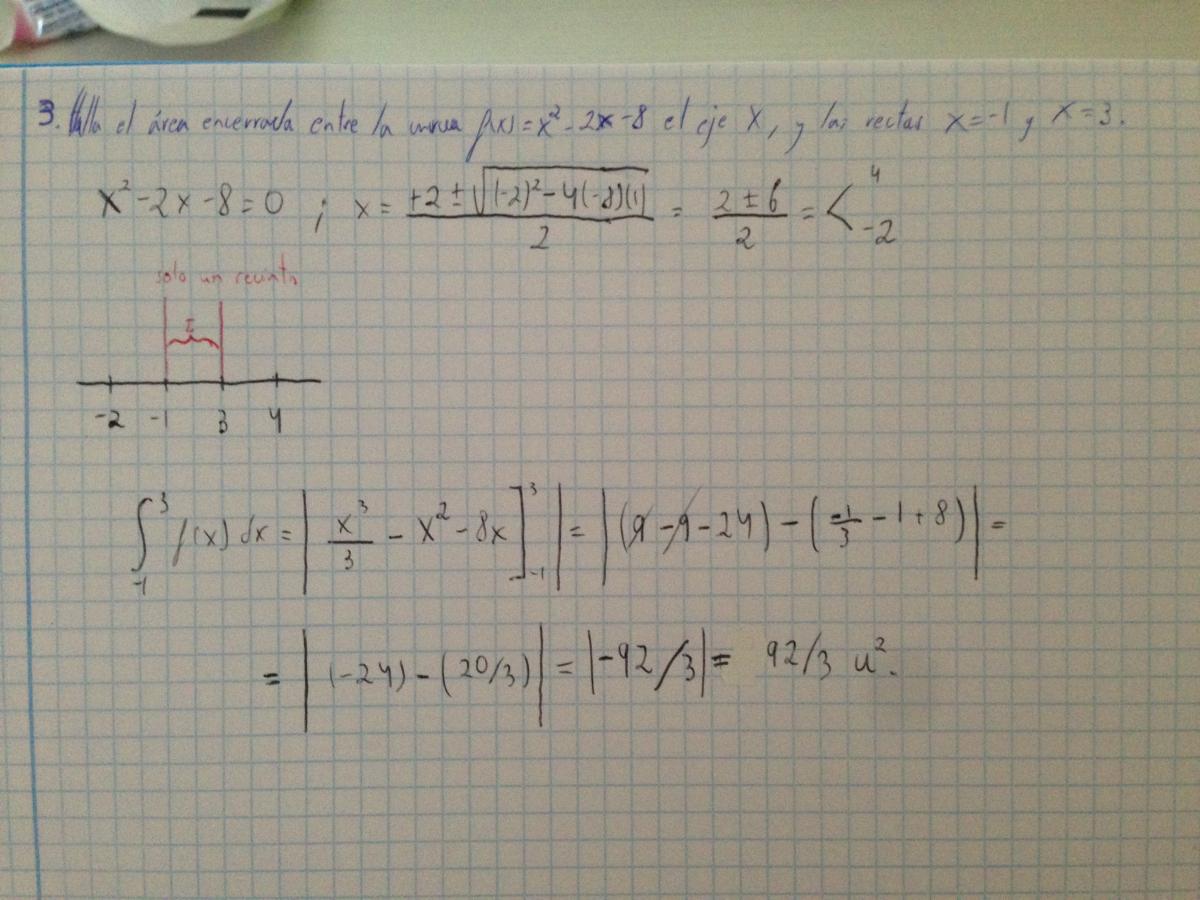 3. Halla el área encerrada entre la curva f(x) = x² - 2x - 8 el eje X, y las rectas x = -1 y x = 3.
x² - 2x - 8 = 0 ; x = (+2 ± √((-2)² - 4(-8)(1)))/2 = (2 ± 6)/2 = < 4 -2
solo un recinto
I
-2 -1 3 4
∫₋₁³ f(x) dx = | x³/3 - x² - 8x ]₋₁³ | = | (9 - 9 - 24) - (-1/3 - 1 + 8) | =
= | (-24) - (20/3) | = | -92/3 | = 92/3 u².